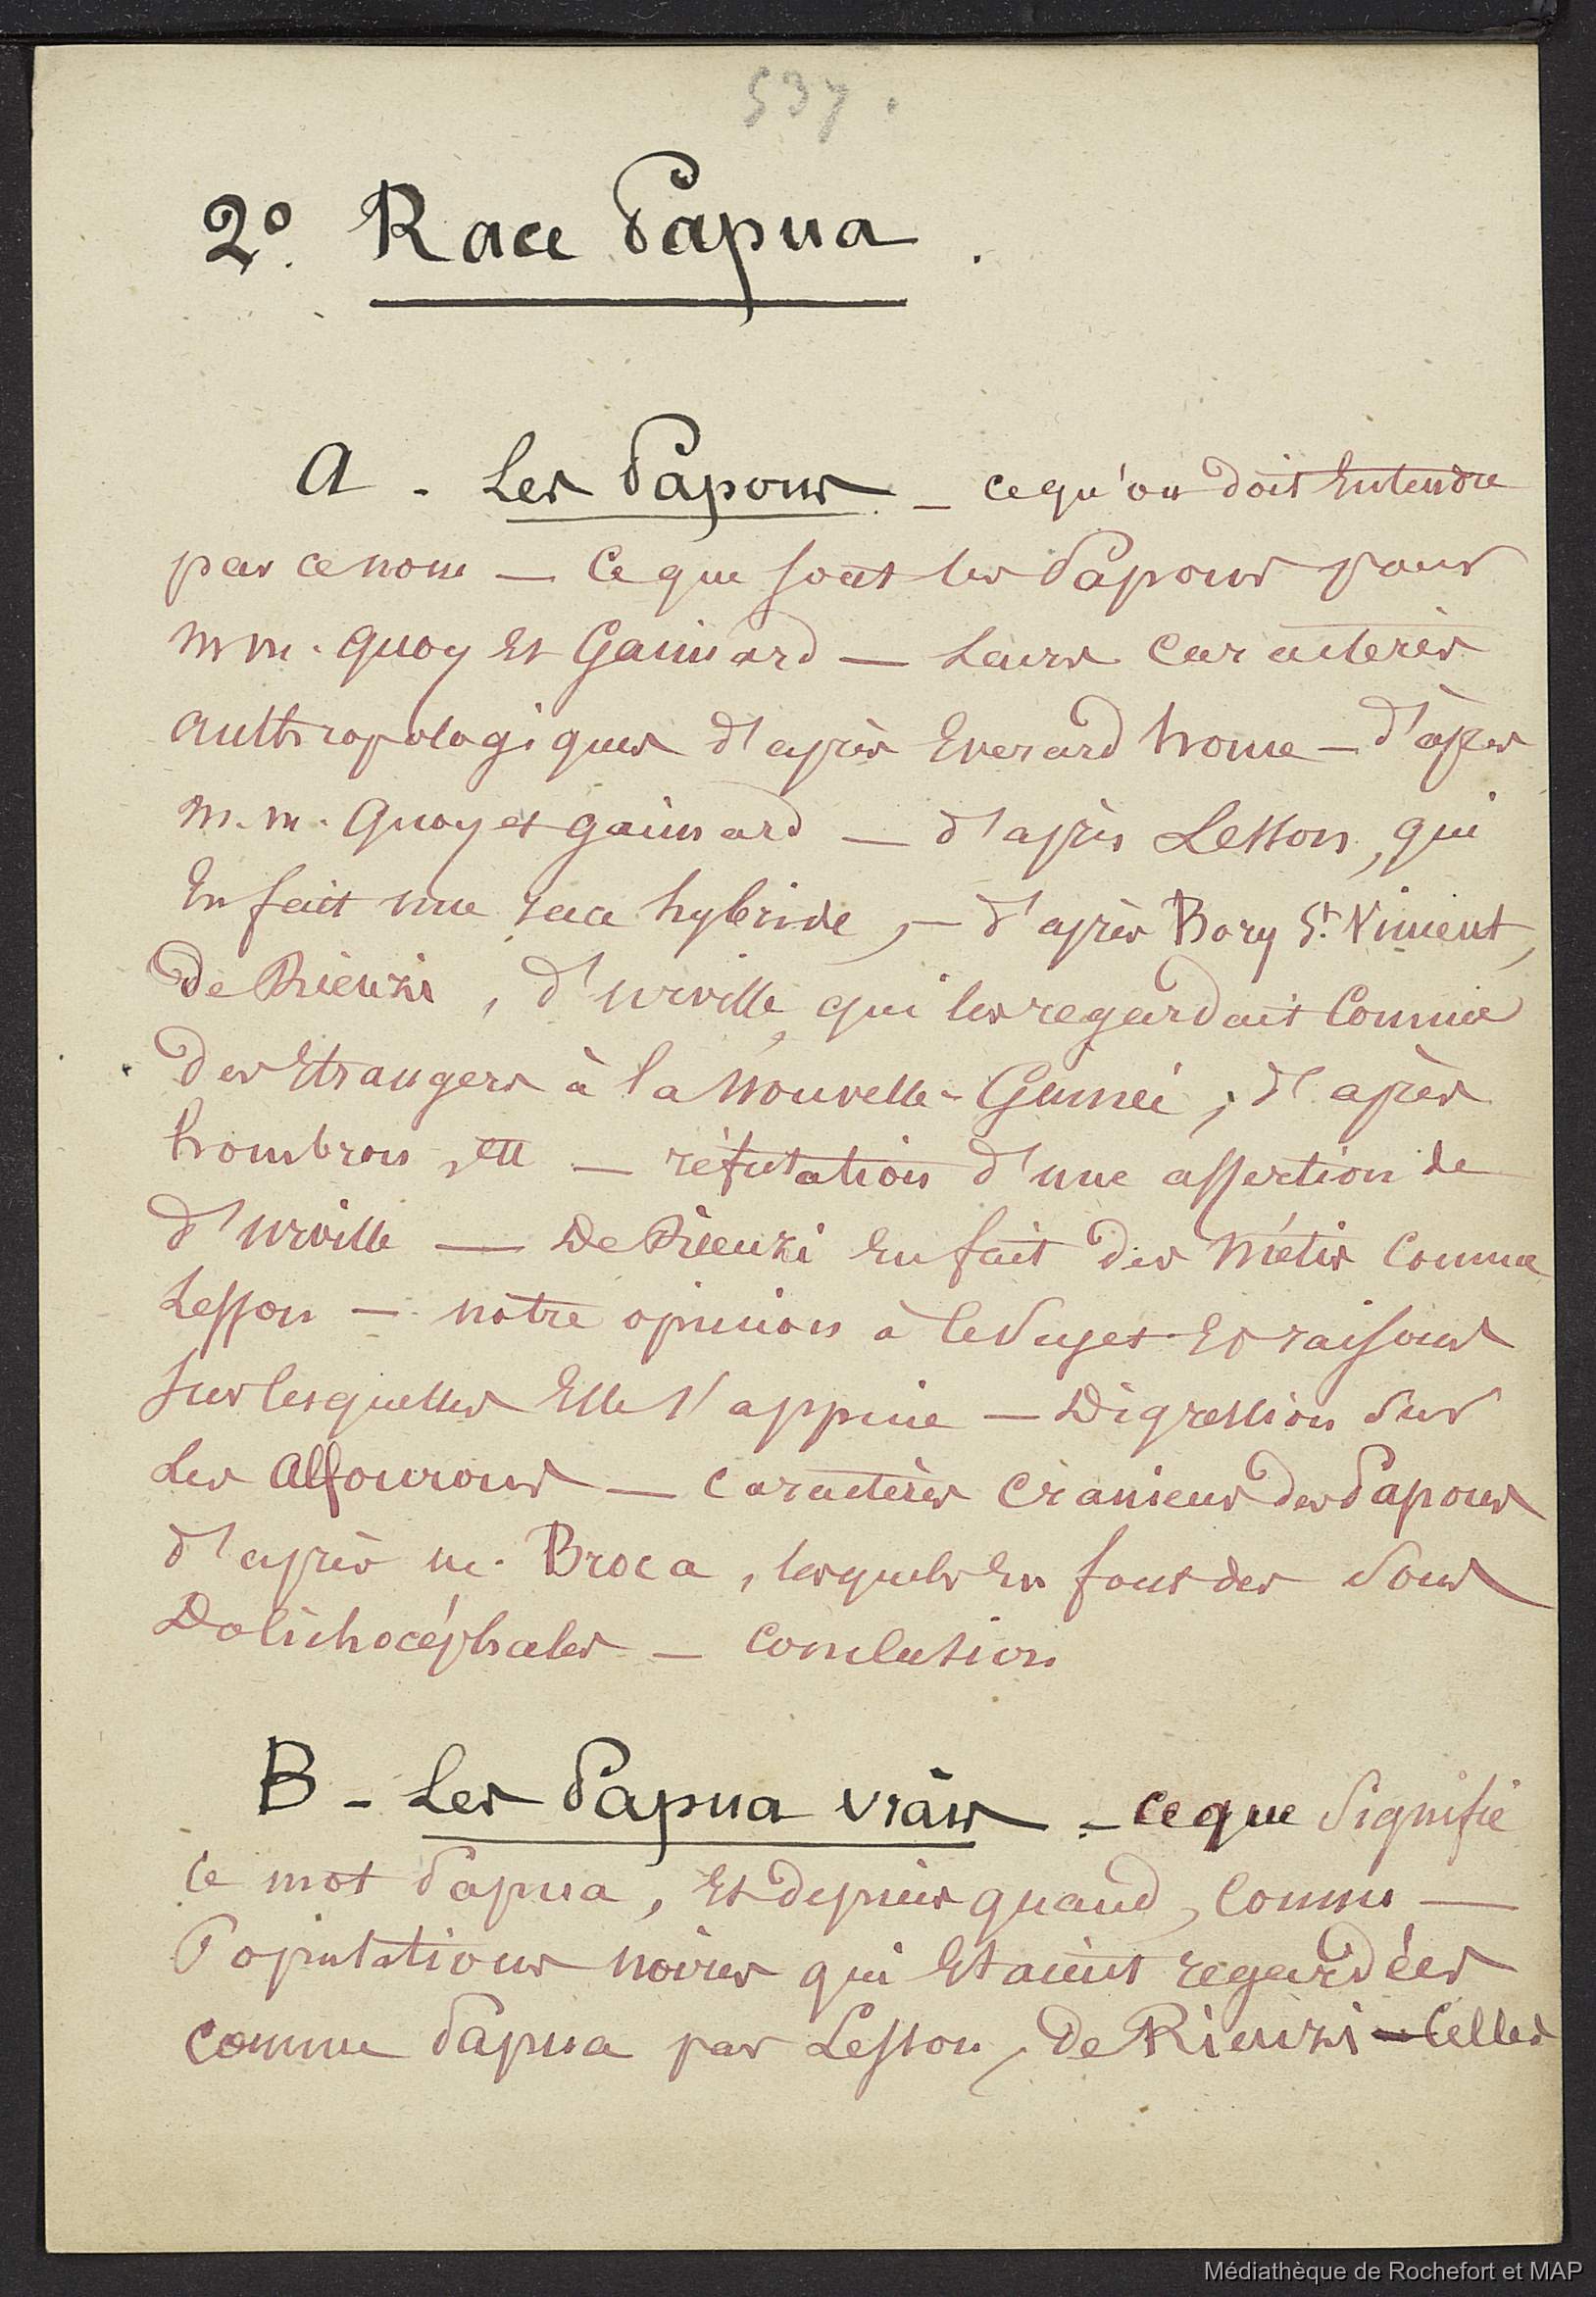 537.
2º. Race Papua.
A - Les Papous. _ ce qu'on doit Entendre
par ce nom — Ce que sont les Papous pour
m m. Quoy Et Gaimard — Leurs Caractères
anthropologiques d'après Everard home — d'après
m. m. Quoy et gaimard — d'après Lesson, qui
En fait une race hybride, — d'après Bory St. Vincent,
De Rienzi, d'urville, qui les regardait Comme
des Etrangers à la Nouvelle-Guinée, d'après
hombron, etc — réfutation d'une assertion de
d'urville — De Rienzi En fait des Métis Comme
Lesson — notre opinion à ce sujet Et raisons
sur lesquelles Elle s'appuie — Digression sur
les Alfourous — caractères crâniens des Papous
d'après m. Broca, lesquels En font des sous
Dolichocéphales — conclusion
B - Les Papua vrais. — ce que signifie
le mot Papua, Et depuis quand, Connu —
Populations noires qui Etaient regardées
comme Papua par Lesson, de Rienzi — Celles
Médiathèque de Rochefort et MAP